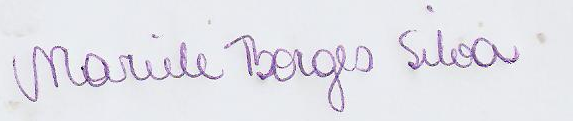 Mariele Borges Silva